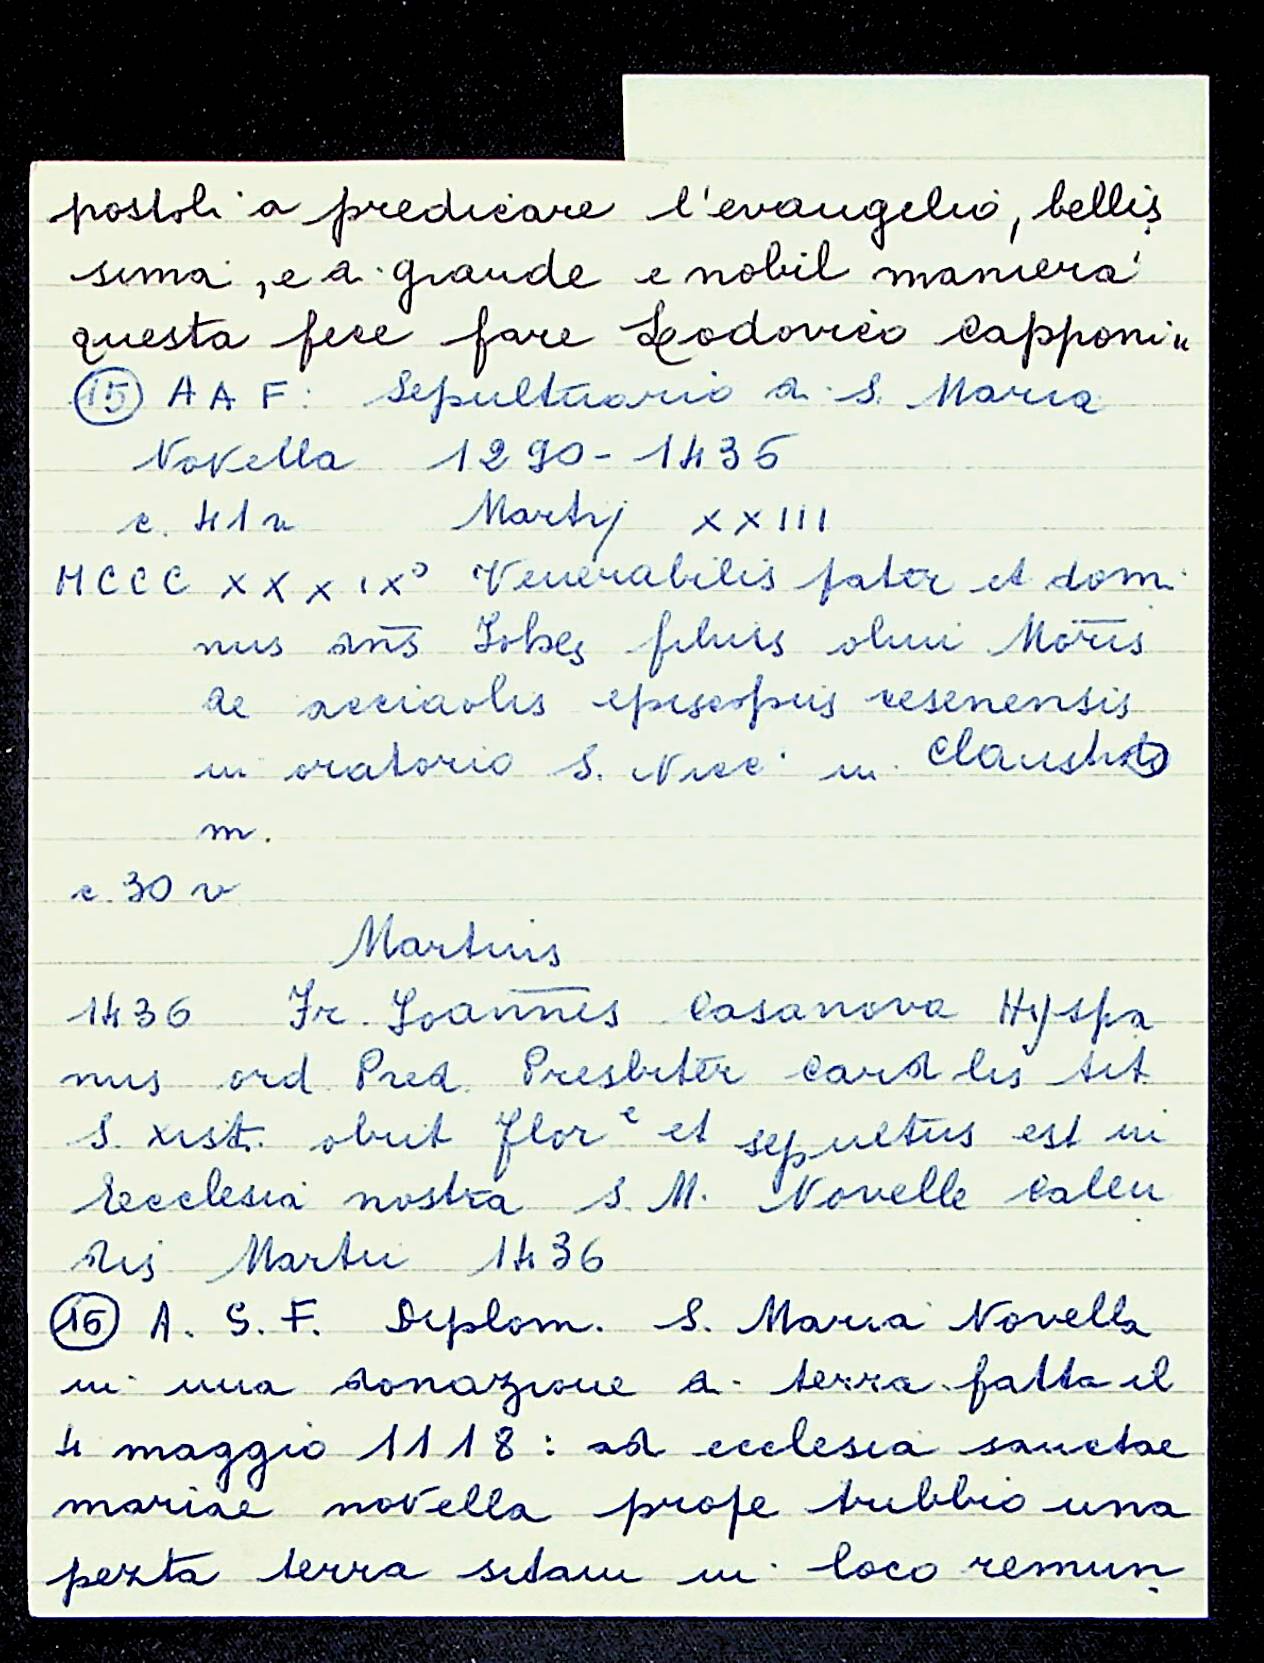 postoli a predicare l'evangelio, bellis
sima, e di grande e nobil maniera
questa fece fare Lodovico Capponi"
(15) A A F: Sepultuario di S. Maria
Novella 1290-1436
c. 41 v Martij XXIII
MCCCXXXIX° Venerabilis pater et domi
nus dn̄s Johes filius olim Mōris
de acciaolis episcopus cesenensis
in oratorio S. Nicci in Claustro
m.
c. 30 v
Martius
1436 Fr. Joan̄nes Casanova Hyspa
nus ord Pred. Presbitēr Card lis tit
S. xist. obiit Flor e et sepultus est in
Ecclesia nostra S. M. Novelle Calen
dis Martii 1436
(16) A. S. F. Diplom. S. Maria Novella
in una donazione di terra fatta il
4 maggio 1118: ad ecclesia sanctae
mariae novella prope trebbio una
pezta terra sitam in loco remun